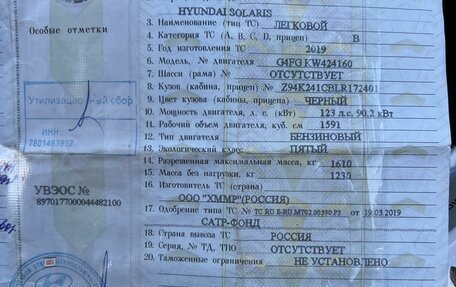 HYUNDAI SOLARIS
Особые отметки
3. Наименование (тип ТС) ЛЕГКОВОЙ
4. Категория ТС (A, B, C, D, прицеп) B
5. Год изготовления ТС 2019
6. Модель, № двигателя G4FG KW424160
7. Шасси (рама) № ОТСУТСТВУЕТ
8. Кузов (кабина, прицеп) № Z94K241CBLR172401
9. Цвет кузова (кабины, прицепа) ЧЕРНЫЙ
10. Мощность двигателя, л. с. (кВт) 123 л.с. 90.2 кВт
11. Рабочий объем двигателя, куб. см 1591
12. Тип двигателя БЕНЗИНОВЫЙ
13. Экологический класс ПЯТЫЙ
14. Разрешенная максимальная масса, кг 1610
15. Масса без нагрузки, кг 1230
16. Изготовитель ТС (страна)
ООО "ХММР"(РОССИЯ)
17. Одобрение типа ТС № ТС RU E-RU.MT02.00590.P3 от 19.03.2019
САТР-ФОНД
18. Страна вывоза ТС РОССИЯ
19. Серия, № ТД, ТПО ОТСУТСТВУЕТ
20. Таможенные ограничения НЕ УСТАНОВЛЕНО
Утилизационный сбор
ИНН:
7801463902
УВЭОС №
8970177000044482100